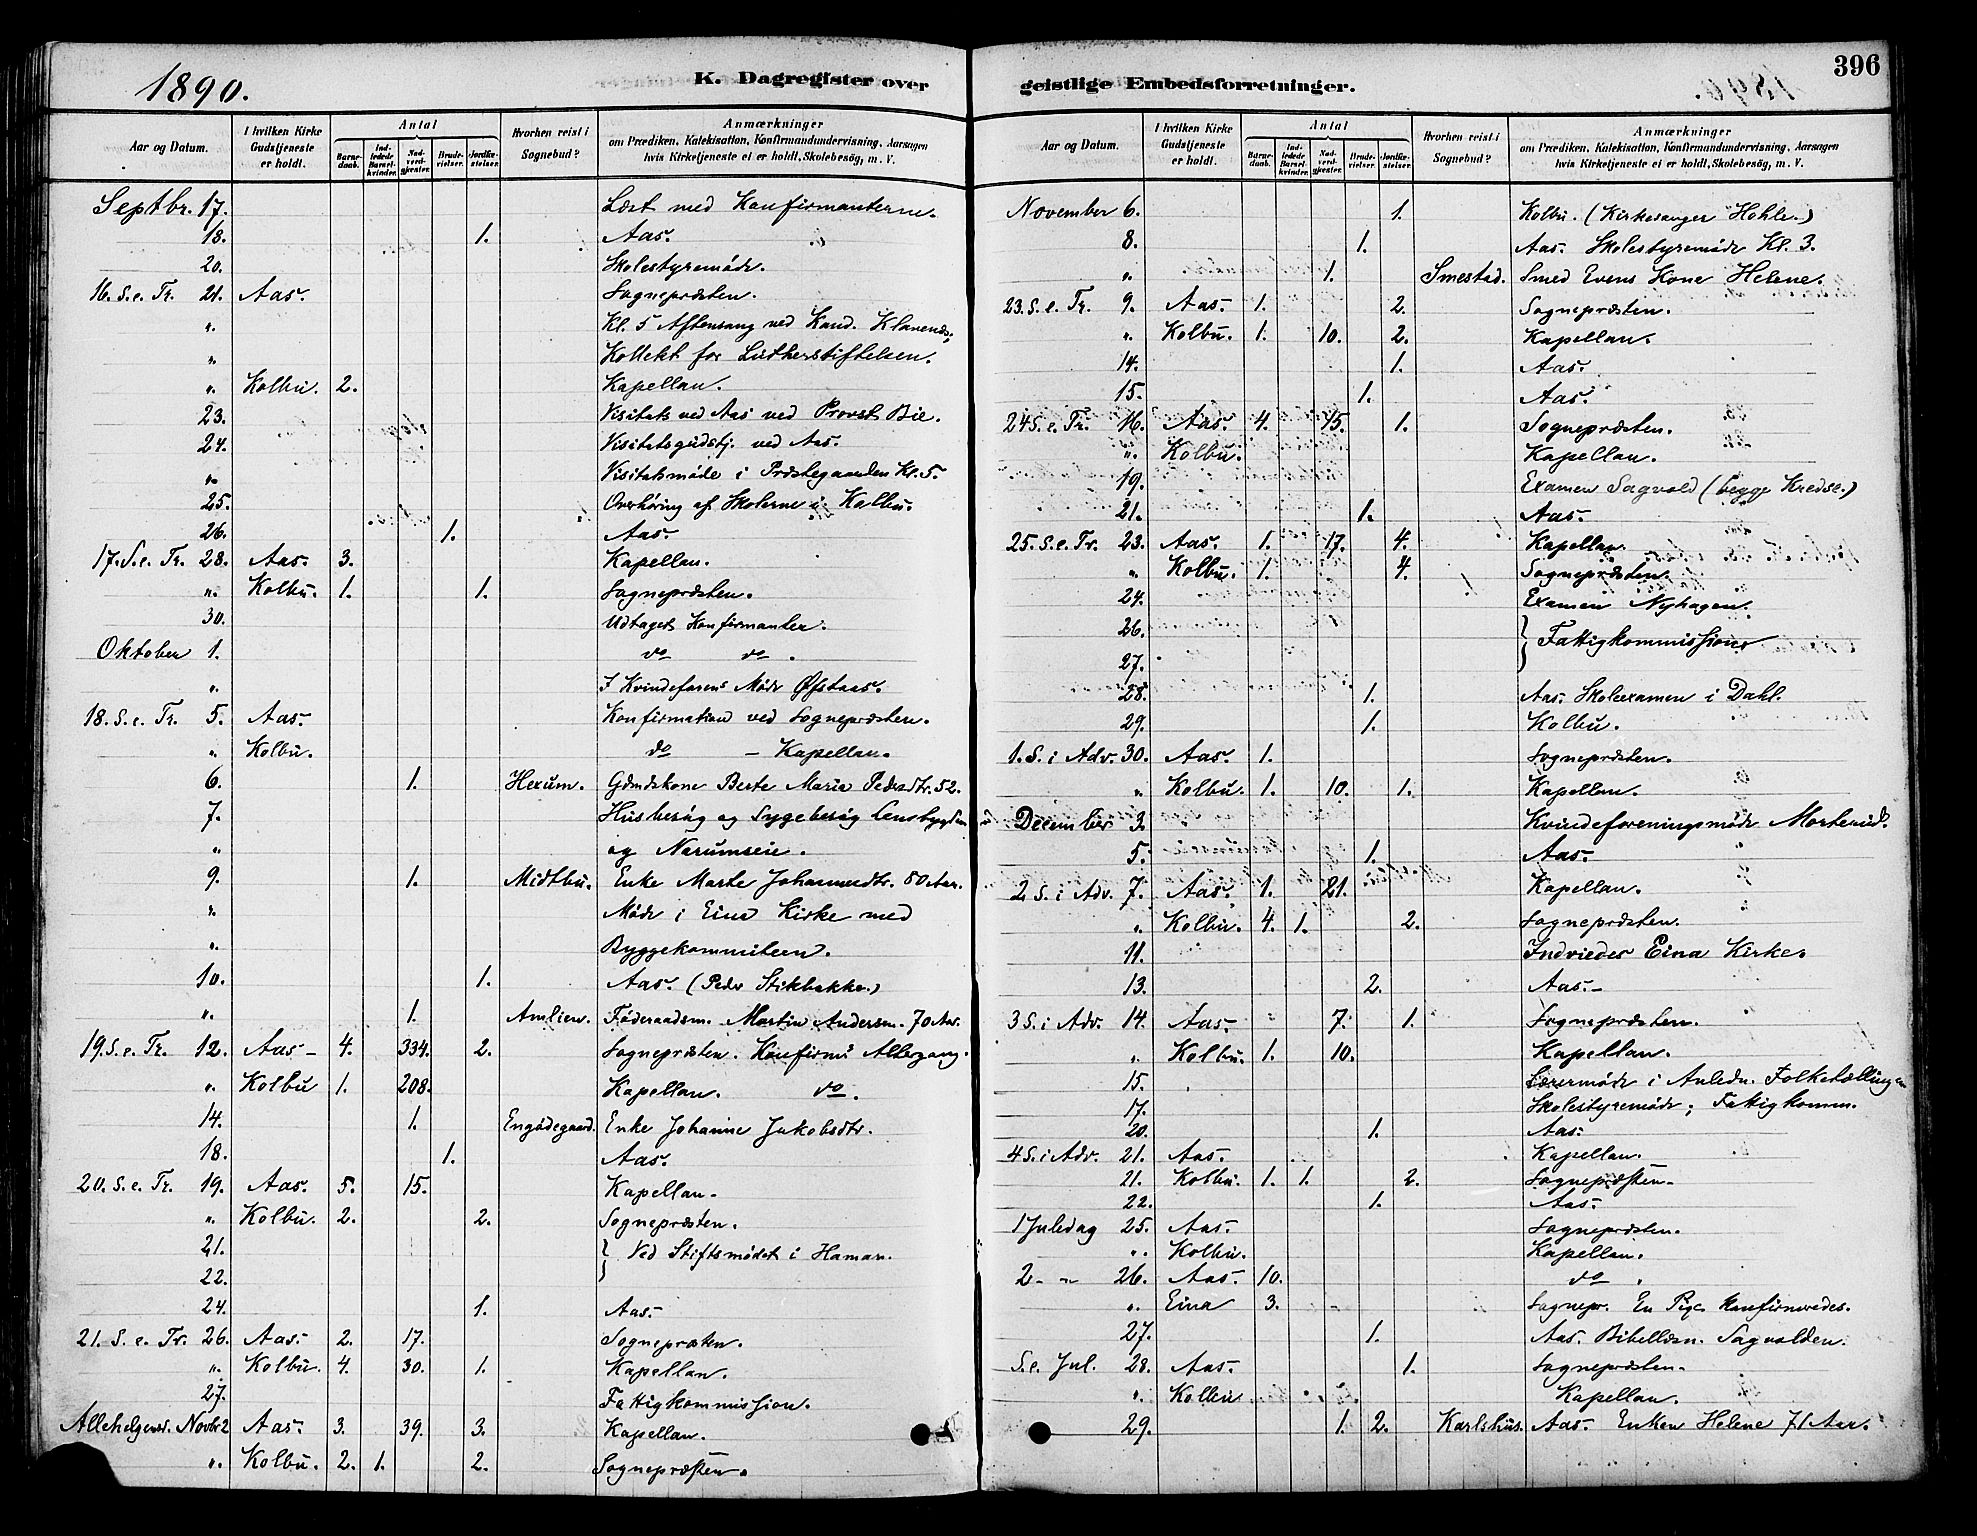 1890.
K. Dagregister over
Aar og Datum. | I hvilken Kirke Gudstjeneste er holdt. | Antal | Barnedaab. | Indledede Barselkvinder. | Nadverdgjæster. | Brudevielser. | Jordfæstelser. | Hvorhen reist i Sognebud? | Anmærkninger om Prædiken, Katekisation, Konfirmandundervisning, Aarsagen hvis Kirketjeneste ei er holdt, Skolebesög, m. V.
Septbr. 17. Læst med Konfirmanterne.
18. 1. Aas.
20. Skolestyremöde.
16. S. e. Tr. 21. Aas. Sognepræsten.
" Kl. 5 Aftensang ved Kand. Klavenæs;
" Kollekt for Lutherstiftelsen.
" Kolbu. 2. Kapellan.
23. Visitats ved Aas ved Provst Bie.
24. Visitatsgudstj. ved Aas.
" Visitatsmöde i Præstegaarden Kl. 5.
25. Overhöring af Skolerne i Kolbu.
26. 1. Aas.
17. S. e. Tr. 28. Aas. 3. Kapellan.
" Kolbu. 1. 1. Sognepræsten.
30. Udtaget Konfirmanter.
Oktober 1. do do.
" I Kvindeforens Möde Øfstaas.
18. S. e. Tr. 5. Aas. Konfirmation ved Sognepræsten.
" Kolbu. do — Kapellan.
6. 1. Hexum. Gdmdskone Berte Marie Pedersdtr. 52.
7. Husbesög og Sygebesög Lensbygden
" og Narumseie.
9. 1. Midtbu. Enke Marte Johannesdtr. 80 Aar.
" Möde i Eina Kirke med
" Byggekommiteen.
10. 1. Aas. (Peder Stikbakke.)
" 1. Amlien. Föderaadsm. Martin Andersen. 70 Aar.
19. S. e. Tr. 12. Aas— 4. 334. 2. Sognepræsten. Konfirms Altergang.
" Kolbu 1. 208. Kapellan. do.
14. 1. Engödegaard. Enke Johanne Jakobsdtr.
18. 1. Aas.
20. S. e. Tr. 19. Aas. 5. 15. Kapellan.
" Kolbu. 2. 2. Sognepræsten.
21. } Ved Stiftsmödet i Hamar.
22.
24. 1. Aas.
21. S. e. Tr. 26. Aas. 2. 17. Sognepræsten.
" Kolbu. 4. 30. 1. Kapellan.
27. Fattigkommission.
Allehelgensd. Novbr 2 Aas. 3. 39. 3. Kapellan.
" Kolbu. 2. 1. 2. Sognepræsten.
geistlige Embedsforretninger.
396
Aar og Datum. | I hvilken Kirke Gudstjeneste er holdt. | Antal | Barnedaab. | Indledede Barselkvinder. | Nadverdgjæster. | Brudevielser. | Jordfæstelser. | Hvorhen reist i Sognebud? | Anmærkninger om Prædiken, Katekisation, Konfirmandundervisning, Aarsagen hvis Kirketjeneste ei er holdt, Skolebesög, m. V.
November 6. 1. Kolbu. (Kirkesanger Hohle.)
8. 1. Aas. Skolestyremöde Kl. 3.
" 1. Smestad. Smed Evens Kone Helene.
23. S. e. Tr. 9. Aas. 1. 2. Sognepræsten.
" Kolbu. 1. 10. 2. Kapellan.
14. 1. Aas.
15. 1. Aas.
24 S. e. Tr. 16. Aas. 4. 15. 1. Sognepræsten.
" Kolbu. Kapellan.
19. Examen Sagvold (begge Kredse.)
21. 1. Aas.
25. S. e. Tr. 23. Aas. 1. 17. 4. Kapellan.
" Kolbu. 1. 4. Sognepræsten.
24. Examen Nyhagen.
26. } Fattigkommission
27.
28. 1. Aas. Skoleexamen i Dahl.
29. 1. Kolbu.
1. S. i Adv. 30. Aas. 1. Sognepræsten.
" Kolbu. 1. 10. 1. Kapellan.
December 3. Kvindeforeningsmöde Mortenud.
5. 1. Aas.
2 S. i Adv. 7. Aas. 1. 21. Kapellan.
" Kolbu. 4. 1. 2. Sognepræsten.
11. Indviedes Eina Kirke.
13. 2. Aas.—
3 S. i Adv. 14. Aas. 7. 1. Sognepræsten.
" Kolbu. 1. 10. Kapellan.
15. Lærermöde i Anledn. Folketællingen
17. Skolestyremöde; Fattigkomm.
20. 1. Aas.
4 S. i Adv. 21. Aas. Kapellan.
21. Kolbu. 1. 1. 2. Sognepræsten—
22. 1. Aas.
1 Juledag 25. Aas. Sognepræsten.
" Kolbu. Kapellan.
2— " 26. Aas. 10. do.
" Eina 3. Sognepr. En Pige konfirmeredes.
27. 1. Aas. Bibellæsn. Sagvolden.
S. e. Jul. 28. Aas. 1. Sognepræsten.
" Kolbu Kapellan.
29. 1. 2. Karlshus. Aas. Enken Helene 71 Aar.